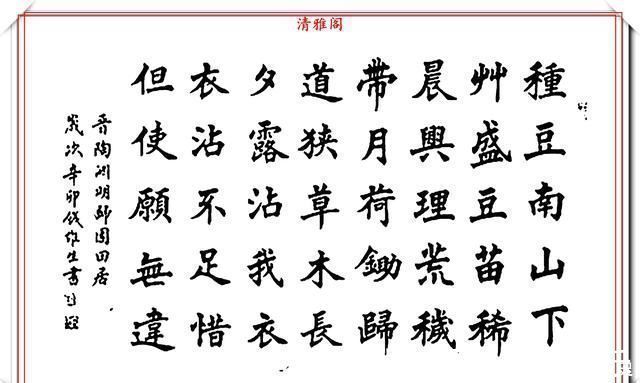 清雅阁
種豆南山下
艸盛豆苗稀
晨興理荒穢
帶月荷鋤歸
道狹草木長
夕露沾我衣
衣沾不足惜
但使願無違
晉陶淵明歸園田居
歲次辛卯錢作生書